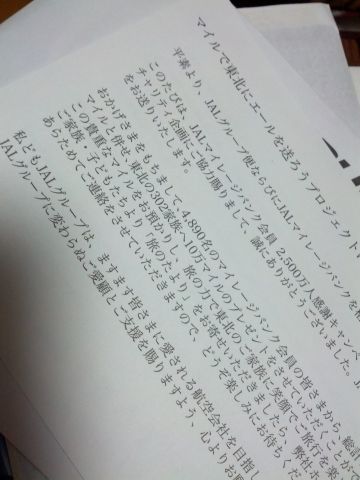 マイルで東北にエールを送ろうプロジェクト
平素より、JALグループ便ならびにJALマイレージバンクを
このたびは、JALマイレージバンク会員 2,500万人感謝キャン
チャリティ企画にご協力賜りまして、誠にありがとうございました。
をお送りいたします。
おかげさまをもちまして、4,890名のマイレージバンク会員の皆さまから、総計
マイルと併せ、東北の302家族へ10万マイルのプレゼントをさせていただくことがで
この貴重なマイルをお預かりし、旅の力で東北のご家族に笑顔でご旅行を楽
ご家族・子どもたちより「旅のたより」をお寄せいただきましたら、弊社ホ
あらためてご連絡をさせていただきますので、どうぞ楽しみにお待ちくだ
私どもJALグループは、ますます皆さまに愛される航空会社を目指し
JALグループに変わらぬご愛顧とご支援を賜りますよう、心よりお